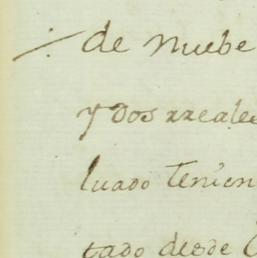 de nuebe
y dos rreales
luado tenien
tado desde